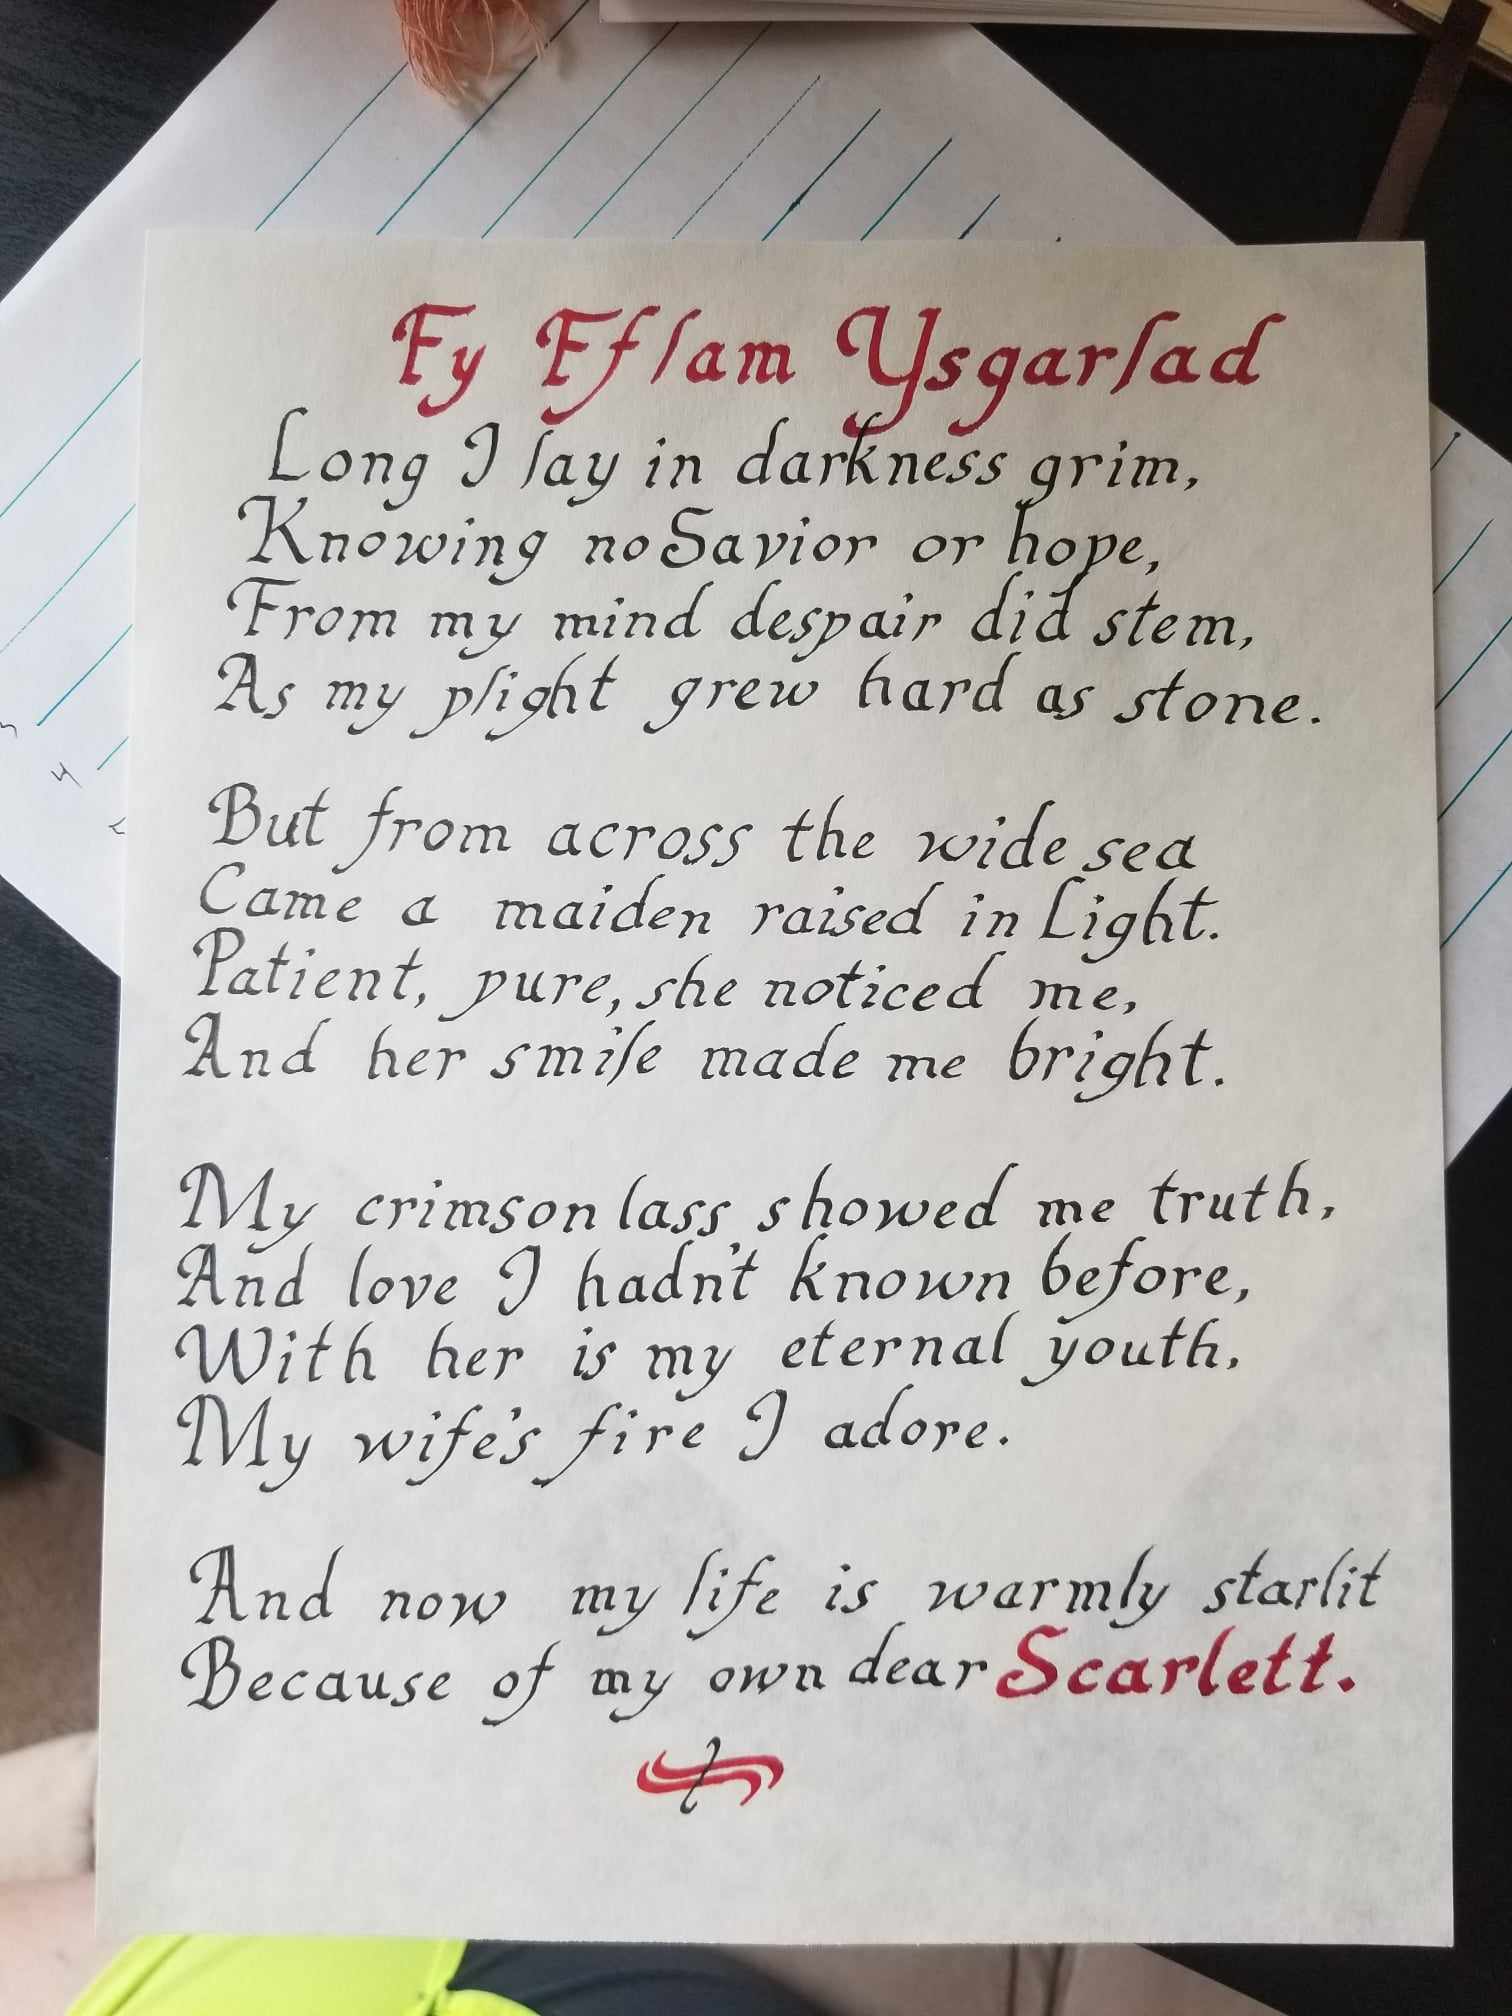 Fy Fflam Ysgarlad
Long I lay in darkness grim,
Knowing no Savior or hope,
From my mind despair did stem,
As my plight grew hard as stone.
But from across the wide sea
Came a maiden raised in Light.
Patient, pure, she noticed me,
And her smile made me bright.
My crimson lass showed me truth,
And love I hadn't known before,
With her is my eternal youth,
My wife's fire I adore.
And now my life is warmly starlit
Because of my own dear Scarlett.
4